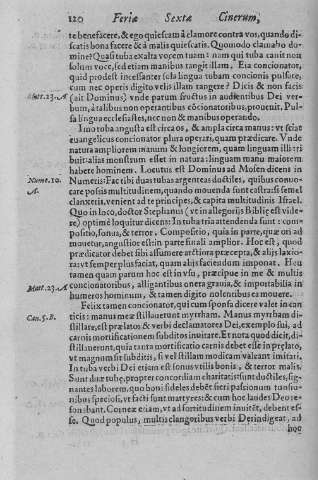 120 Feriæ Sextæ Cinerum,
te benefacere, & ego quiescam à clamore contra vos, quando di-
scatis bona facere & à malis quiescatis. Quomodo clamabo do-
mine? Quasi tuba exalta vocem tuam: nam qui tuba canit non
solum voce, sed etiam manibus tangit illam. Eia concionator,
quid prodest incessanter sola lingua tubam concionis pulsare,
cum nec operis digito velis illam tangere? Dicis & non facis
Matt. 23. A (ait Dominus) vnde parum fructus in audientibus Dei ver-
bum, à talibus non operantibus cōcionatoribus, prouenit. Pul-
sa lingua ecclesiastes, nec non & manibus operando.
Imo tuba angusta est circa os, & ampla circa manus: vt sciat
euangelicus concionator plura operari, quam prædicare. Vnde
natura ampliorem manum & longiorem, quam linguam illi tri
buit: alias monstrum esset in natura: linguam manu maiorem
habere hominem. Locutus est Dominus ad Mosen dicens in
Nume. 10. Numeris: Fac tibi duas tubas argenteas ductiles, quibus conuo-
A. care possis multitudinem, quando mouenda sunt castra: si semel
clanxeris, venient ad te principes, & capita multitudinis Israel.
Quo in loco, doctor Stephanus (vt in allegorijs Bibliæ est vide-
re) optimè loquitur dicens: In tuba tria attendenda sunt: com-
positio, sonus, & terror. Compositio, quia in parte, quæ ori ad
mouetur, angustior est: in parte finali amplior. Hoc est, quod
prædicator debet sibi assumere arctiora præcepta, & alijs laxio-
ra: vt semper plus faciat, quam alijs faciendum imponat. Heu
tamen quam parum hoc est in vsu, præcipue in me & multis
Matt. 23. A concionatoribus, alligantibus onera grauia, & importabilia in
humeros hominum, & tamen digito nolentibus ea mouere.
Felix tamen concionator, qui cum sponsa dicere valet in can
Can. 5. B. ticis: manus meæ stillauerunt myrrham. Manus myrrham di-
stillare, est prælatos & verbi declamatores Dei, exemplo sui, ad
carnis mortificationem subditos inuitare. Et nota quod dicit, di-
stillauerunt, quia tanta mortificatio carnis debet esse in prelato,
vt magnum sit subditis, si vel stillam modicam valeant imitari.
In tuba verbi Dei etiam est sonus vtilis bonis, & terror malis.
Sunt duæ tubę, propter concordiam charitatis: sunt ductiles, sig-
nantes laborem, quo boni fideles debēt fieri passionum tunsio-
nibus speciosi, vt facti sunt martyres: & cum hoc laudes Deo re-
sonabant. Corneæ etiam, vt ad fortitudinem inuitēt, debent es-
se. Quod populus, multis clangoribus verbi Dei indigeat, ad
hoc